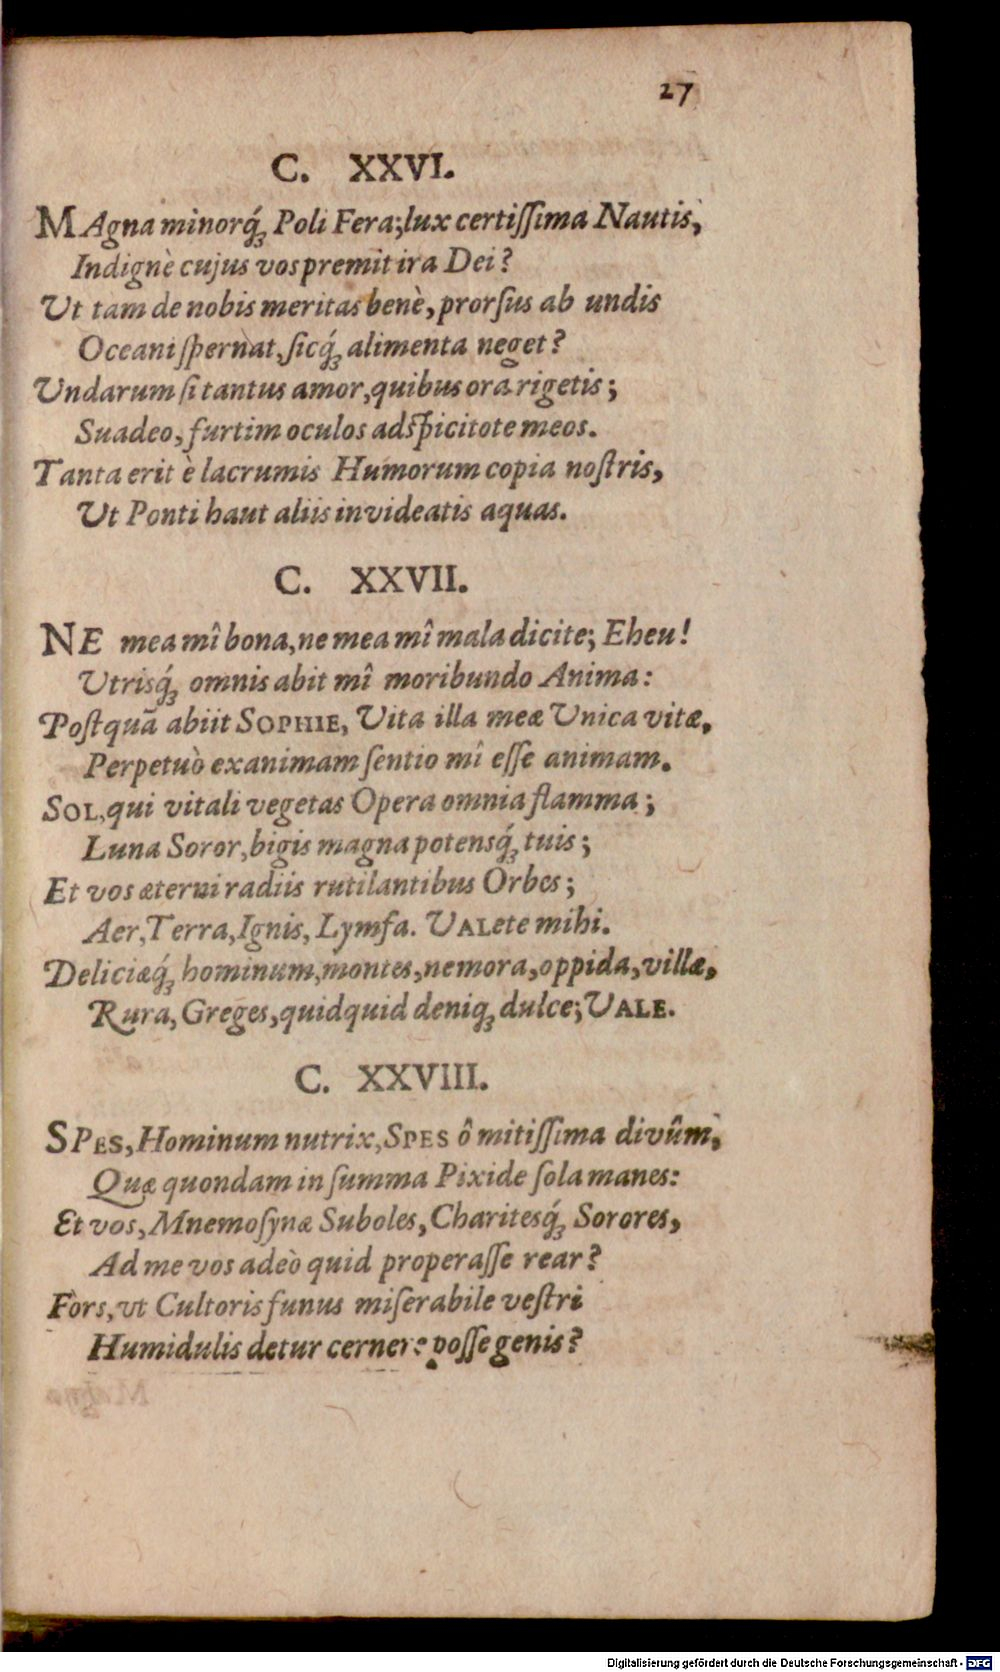 27
C. XXVI.
MAgna minorq́; Poli Fera; lux certiſſima Nautis,
Indignè cujus vos premit ira Dei?
Ut tam de nobis meritas benè, prorſus ab undis
Oceani ſpernat, ſicq́; alimenta neget?
Undarum ſi tantus amor, quibus ora rigetis;
Suadeo, furtim oculos adſpicitote meos.
Tanta erit è lacrumis Humorum copia noſtris,
Ut Ponti haut aliis invideatis aquas.
C. XXVII.
NE mea mî bona, ne mea mî mala dicite; Eheu!
Utrisq́; omnis abit mî moribundo Anima:
Poſtquã abiit SOPHIE, Vita illa meæ Unica vitæ,
Perpetuò exanimam ſentio mî eſſe animam.
SOL, qui vitali vegetas Opera omnia flamma;
Luna Soror, bigis magna potensq́; tuis;
Et vos æterni radiis rutilantibus Orbes;
Aer, Terra, Ignis, Lymfa. VALete mihi.
Deliciæq́; hominum, montes, nemora, oppida, villæ,
Rura, Greges, quidquid deniq; dulce; VALE.
C. XXVIII.
SPES, Hominum nutrix, SPES ô mitiſſima divûm,
Quæ quondam in ſumma Pixide ſola manes:
Et vos, Mnemoſynæ Suboles, Charitesq́; Sorores,
Ad me vos adeò quid properaſſe rear?
Fors, vt Cultoris funus miſerabile veſtri
Humidulis detur cernere poſſe genis?
Digitalisierung gefördert durch die Deutsche Forschungsgemeinschaft - DFG